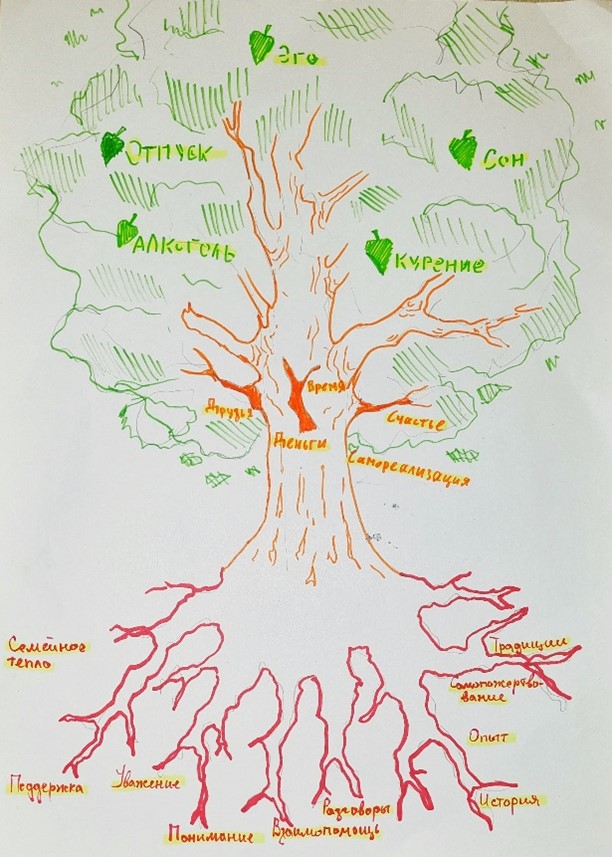 Эго
Отпуск
Сон
Алкоголь
Курение
Время
Друзья
Счастье
Деньги
Самореализация
Семейное
тепло
Традиции
Самопожертво-
вание
Опыт
Поддержка
Уважение
История
Разговоры
Понимание
Взаимопомощь